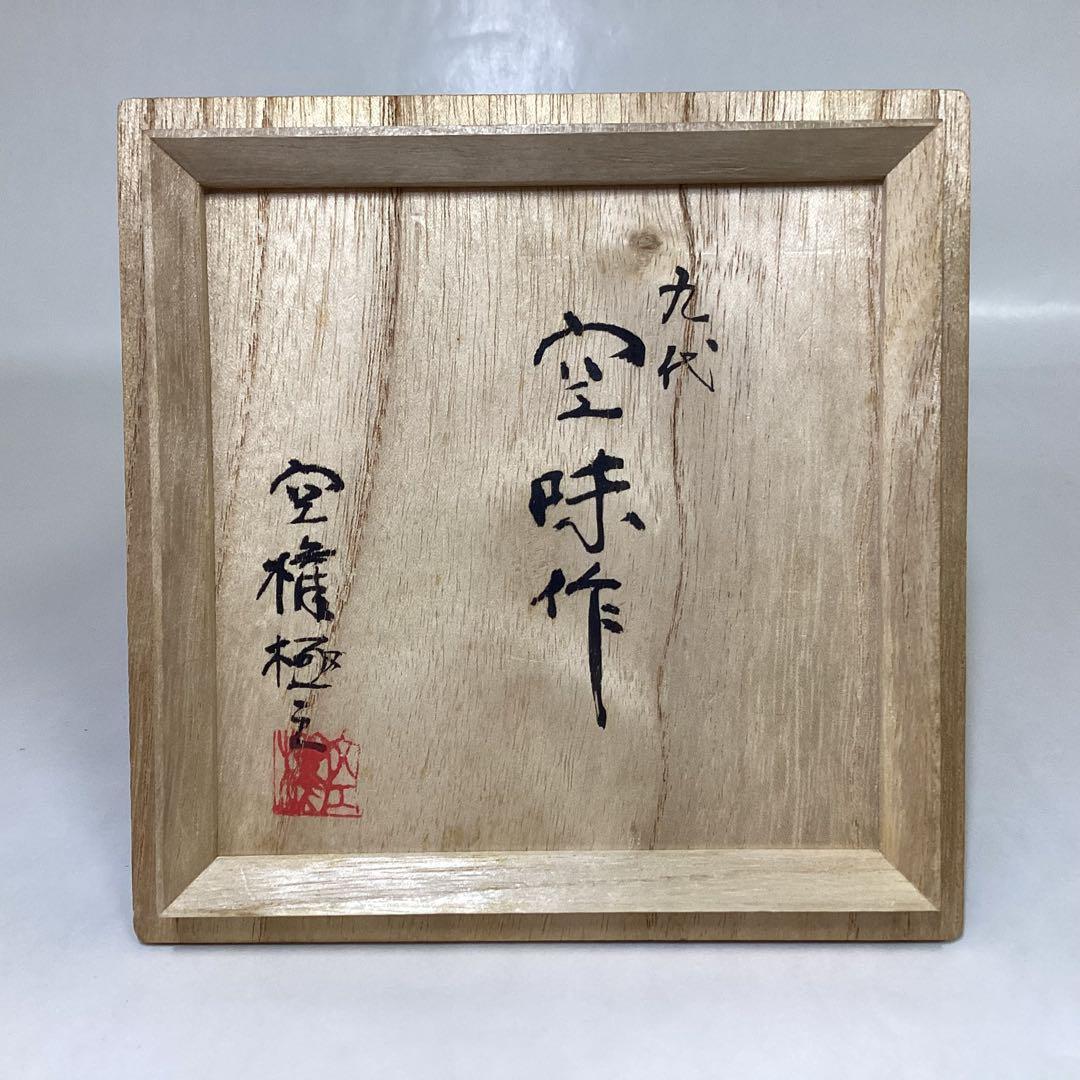 九代
空味作
空権極之